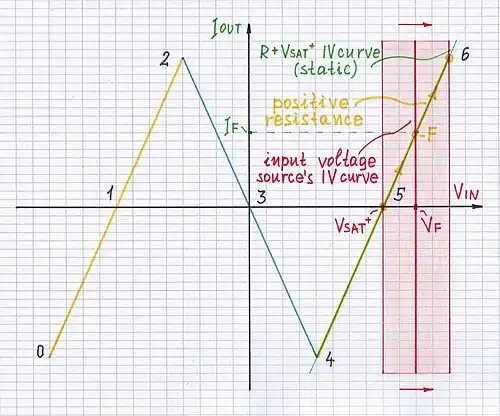 IOUT
2
R+VSAT+ IV curve
(static)
6
positive
resistance
IF
F
input voltage
source's IV curve
1
3
5
VIN
VSAT+
VF
0
4